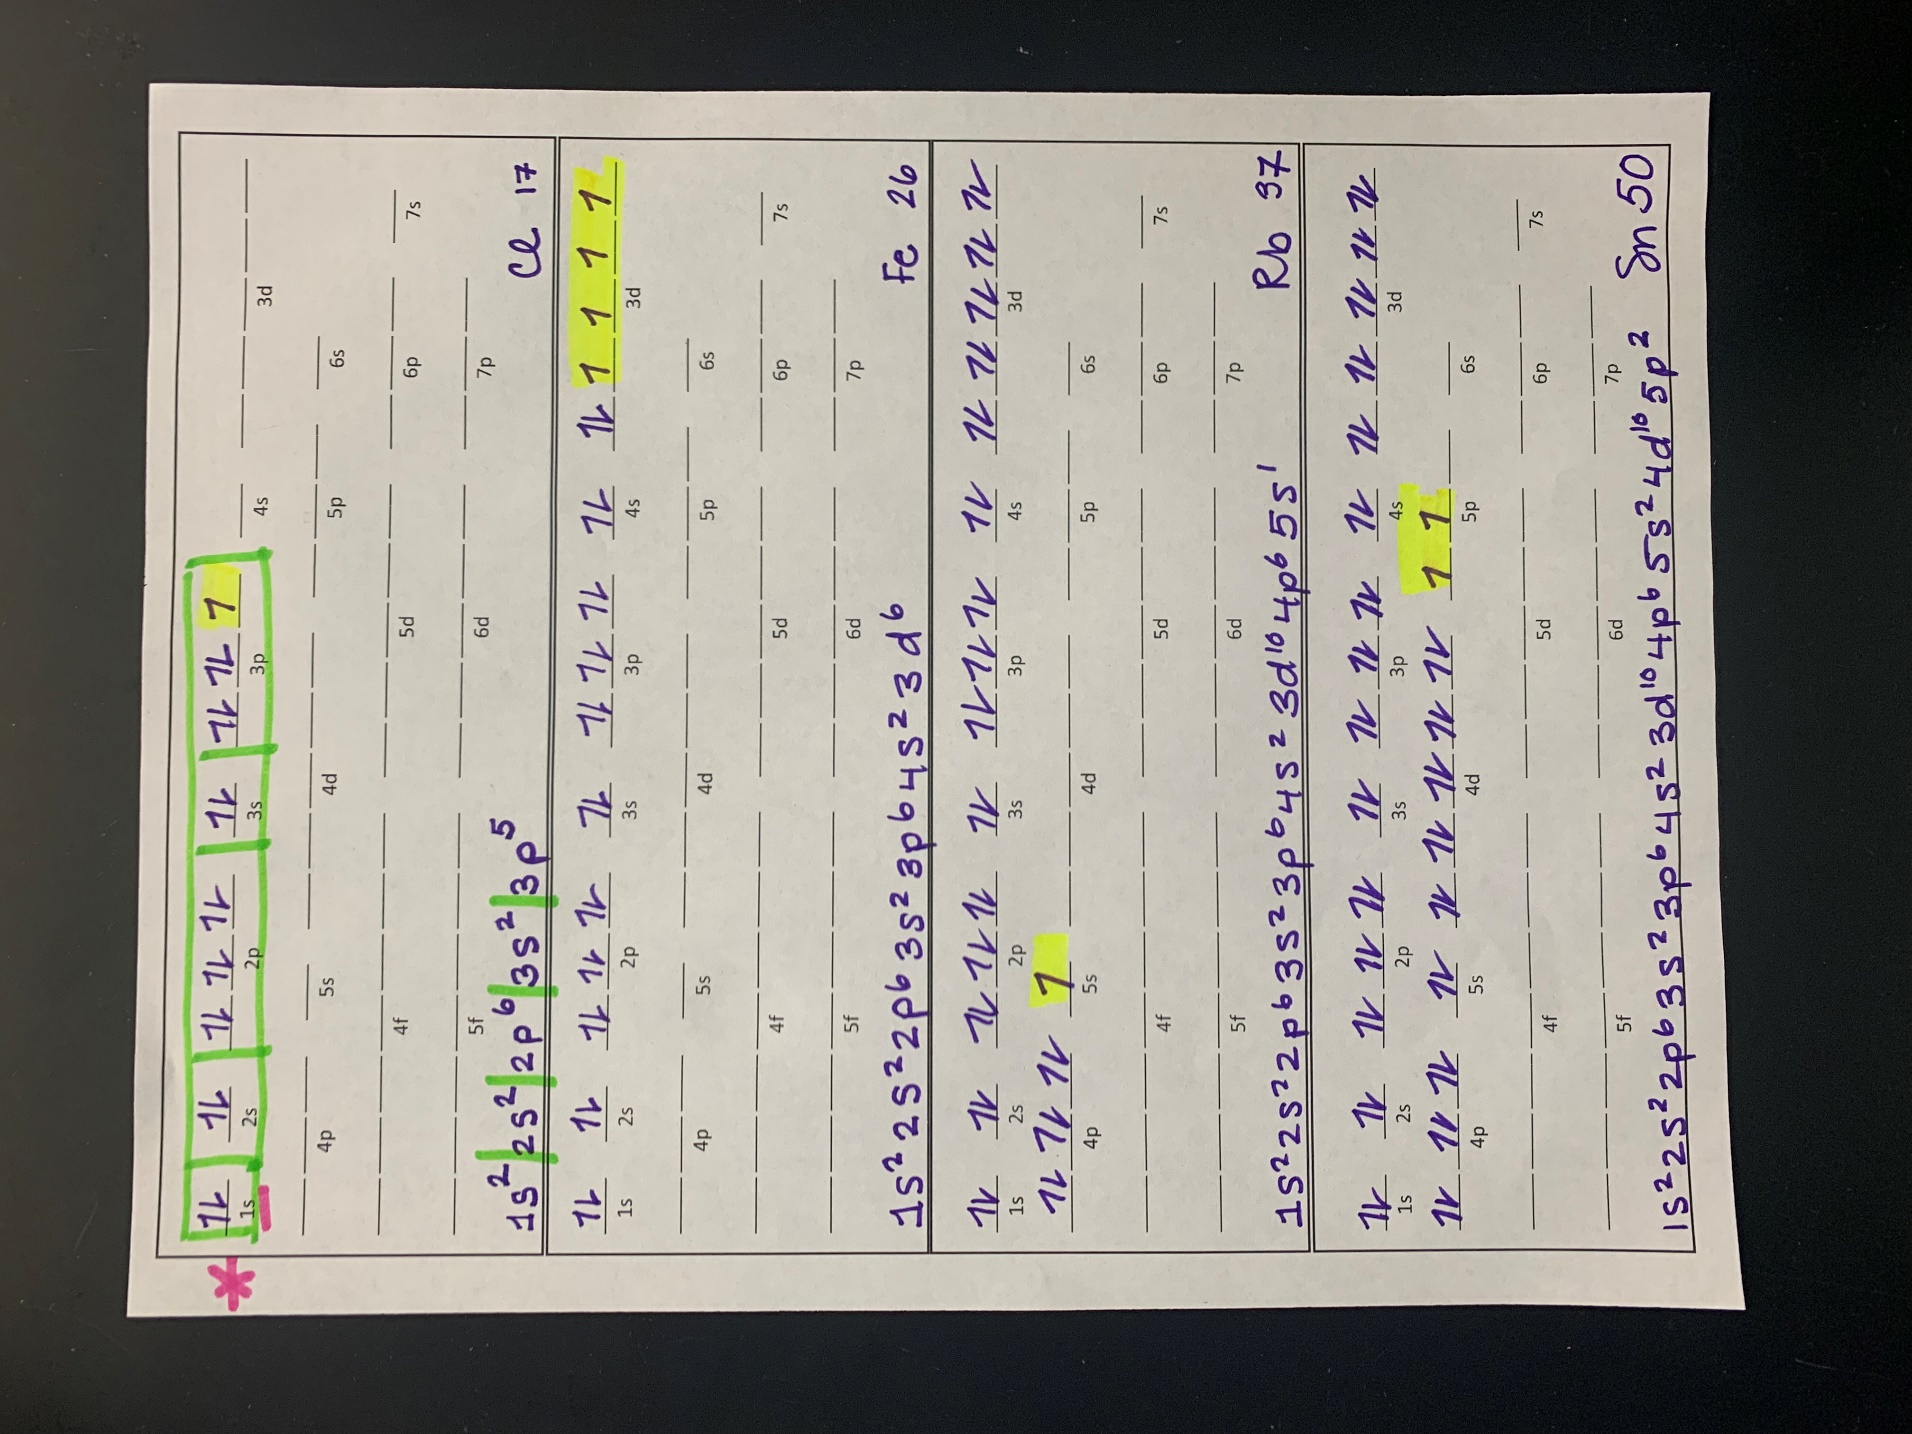 *
1s 2s 2p 3s 3p 4s 3d
4p 5s 4d 5p 6s
4f 5d 6p 7s
5f 6d 7p
1s² | 2s² | 2p⁶ | 3s² | 3p⁵ Cl 17
1s 2s 2p 3s 3p 4s 3d
4p 5s 4d 5p 6s
4f 5d 6p 7s
5f 6d 7p
1s² 2s² 2p⁶ 3s² 3p⁶ 4s² 3d⁶ Fe 26
1s 2s 2p 3s 3p 4s 3d
4p 5s 4d 5p 6s
4f 5d 6p 7s
5f 6d 7p
1s² 2s² 2p⁶ 3s² 3p⁶ 4s² 3d¹⁰ 4p⁶ 5s¹ Rb 37
1s 2s 2p 3s 3p 4s 3d
4p 5s 4d 5p 6s
4f 5d 6p 7s
5f 6d 7p
1s² 2s² 2p⁶ 3s² 3p⁶ 4s² 3d¹⁰ 4p⁶ 5s² 4d¹⁰ 5p² Sn 50